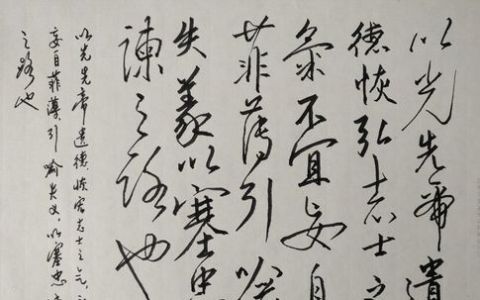 以光先帝遺
德恢弘志士之
氣不宜妄自
菲薄引喻
失義以塞忠
諫之路也
以光先帝遺德恢宏志士之气
妄自菲薄引喻失义以塞忠
之路也